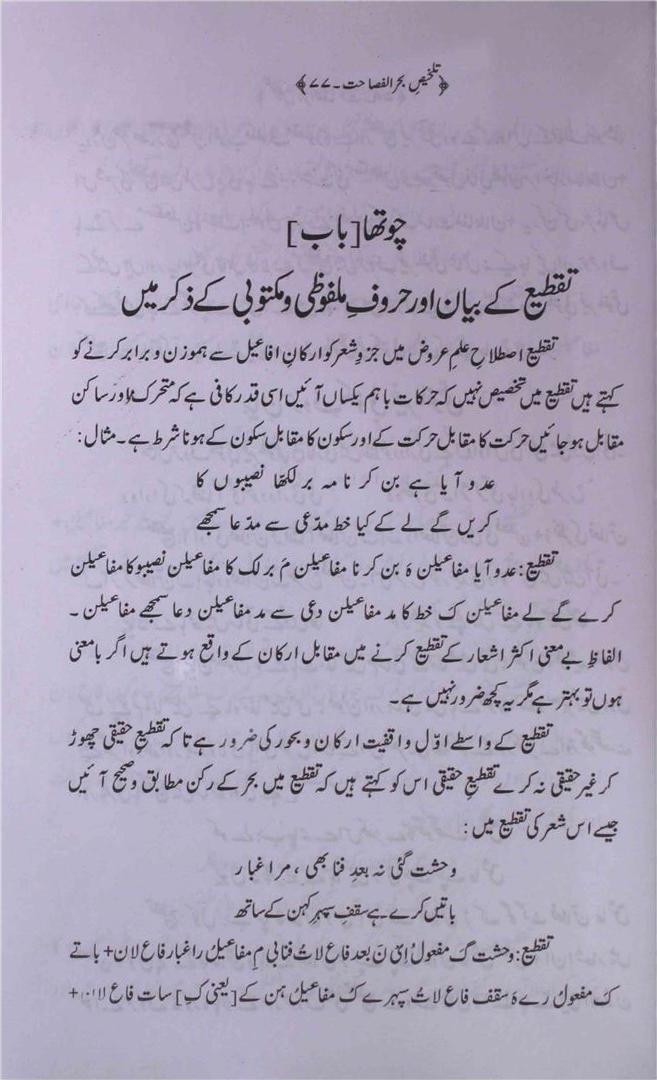 ﴿تلخیصِ بحرالفصاحت۔۷۷﴾
چوتھا[باب]
تقطیع کے بیان اور حروفِ ملفوظی و مکتوبی کے ذکر میں
تقطیع اصطلاحِ علمِ عروض میں جزوِ شعر کو ارکانِ افاعیل سے ہموزن و برابر کرنے کو
کہتے ہیں تقطیع میں تخصیص نہیں کہ حرکات باہم یکساں آئیں اسی قدر کافی ہے کہ متحرک اور ساکن
مقابل ہو جائیں حرکت کا مقابل حرکت کے اور سکون کا مقابل سکون کے ہونا شرط ہے۔مثال:
عدو آیا ہے بن کر نامہ بر لکھّا نصیبوں کا
کریں گے لے کے کیا خط مدّعی سے مدّعا سمجھے
تقطیع: عدو آیا مفاعیلن ہَ بن کر نا مفاعیلن مَ بر لک کا مفاعیلن نصیبو کا مفاعیلن
کرے گے لے مفاعیلن کِ خط کا مد مفاعیلن دعی سے مد مفاعیلن دعا سمجھے مفاعیلن۔
الفاظِ بے معنی اکثر اشعار کے تقطیع کرنے میں مقابل ارکان کے واقع ہوتے ہیں اگر بامعنی
ہوں تو بہتر ہے مگر یہ کچھ ضرور نہیں ہے۔
تقطیع کے واسطے اوّل واقفیت ارکان و بحور کی ضرور ہے تا کہ تقطیعِ حقیقی چھوڑ
کر غیر حقیقی نہ کرے تقطیعِ حقیقی اس کو کہتے ہیں کہ تقطیع میں بحر کے رکن مطابق و صحیح آئیں
جیسے اس شعر کی تقطیع میں:
وحشت گئی نہ بعدِ فنا بھی، مرا غبار
باتیں کرے ہے سقفِ سپہرِ کہن کے ساتھ
تقطیع: وحشت گَ مفعولُ اِی نَ بعد فاع لاتُ فنا بی مِ مفاعیلُ راغبار فاع لان+ باتے
کَ مفعولُ رے ہَ سقف فاع لاتُ سپہرے کُ مفاعیلُ ہن کے [یعنی کِ] سات فاع لان+